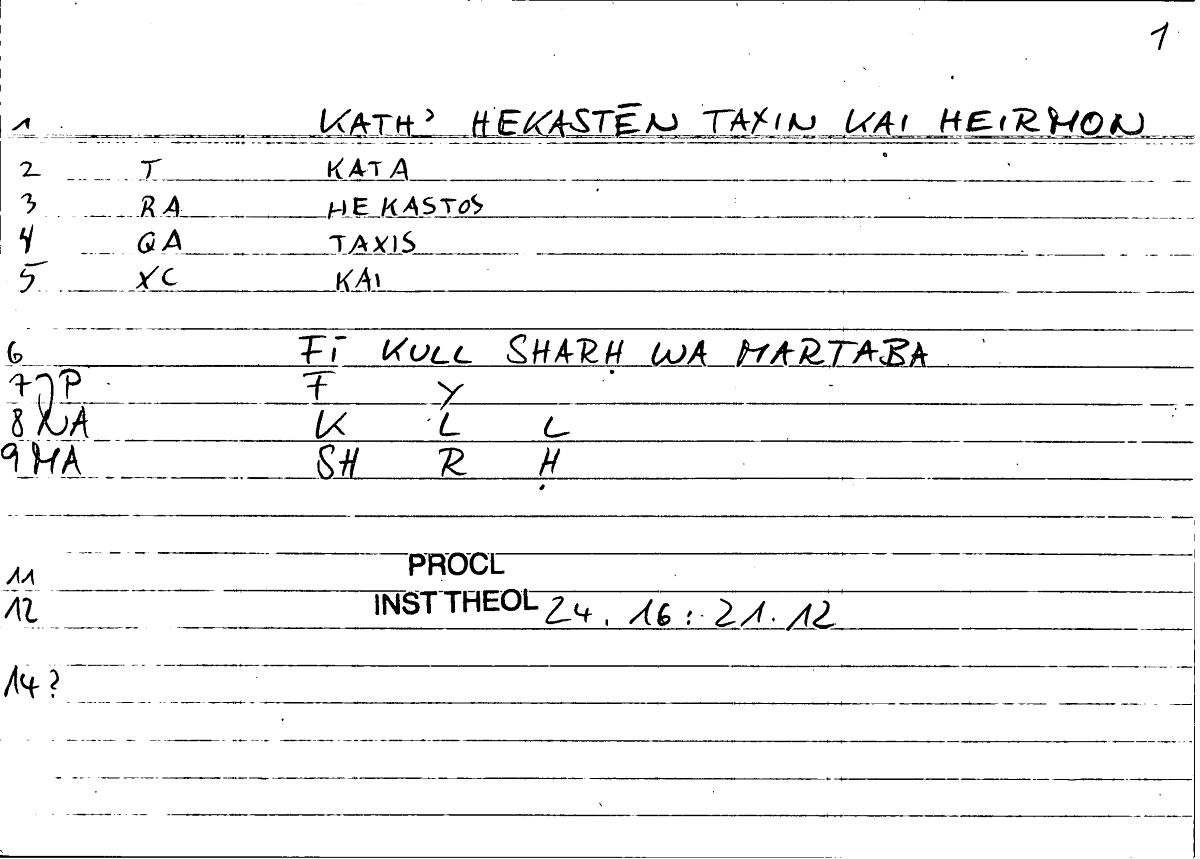 1
1 KATH' HEKASTĒN TAXIN KAI HEIRMON
2 T KATA
3 RA HEKASTOS
4 QA TAXIS
5 XC KAI
6 FĪ KULL SHARḤ WA MARTABA
7 JP F Y
8 NA K L L
9 MA SH R Ḥ
11 PROCL
12 INST THEOL 24. 16 : 21. 12
14?